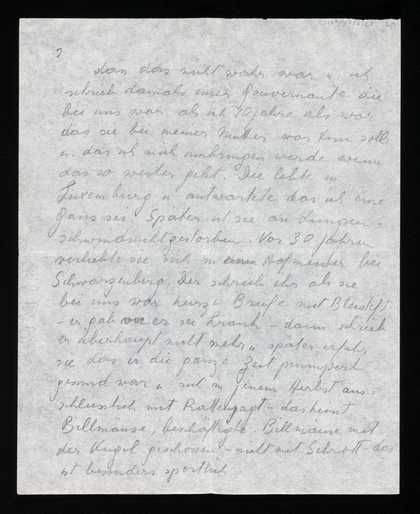 ?
dan das nicht wahr war u ich
schrieb damals einer Gouvernante die
bei uns war als ich 10 Jahre alt war
das sie bei meiner Mutter war soll
u. das ich mich umbringen werde wenn
das so weiter geht. Die lebte in
Luxemburg u antwortete das ich eine
Gans sei. Später ist sie an Lungen-
schwindsucht gestorben. Vor 30 Jahren
verliebte sie sich in einen Hofmeister bei
Schwarzenberg. Der schrieb ihr als sie
bei uns war kurze Briefe mit Bleistift
- er gab vor er sei krank - dann schrieb
er überhaupt nicht mehr u später erfuhr
sie das er die ganze Zeit pumperl-
gesund war u sich in jenem Herbst aus-
schliesslich mit Rattenjagd - das heisst
Billmäuse, beschäftigte. Billmäuse mit
der Kugel geschossen - nicht mit Schrott - das
ist besonders sportlich